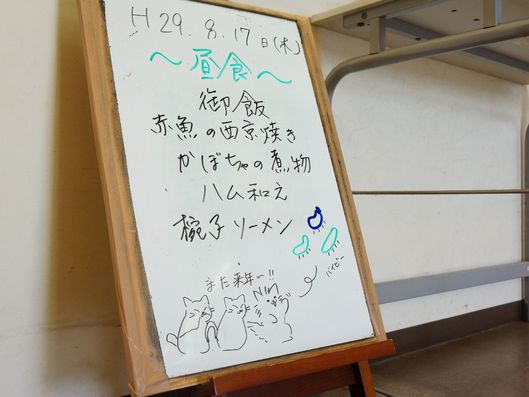 H 29. 8. 17日(木)
〜昼食〜
御飯
赤魚の西京焼き
かぼちゃの煮物
ハム和え
椀子ソーメン
また来年〜!!
バイビー